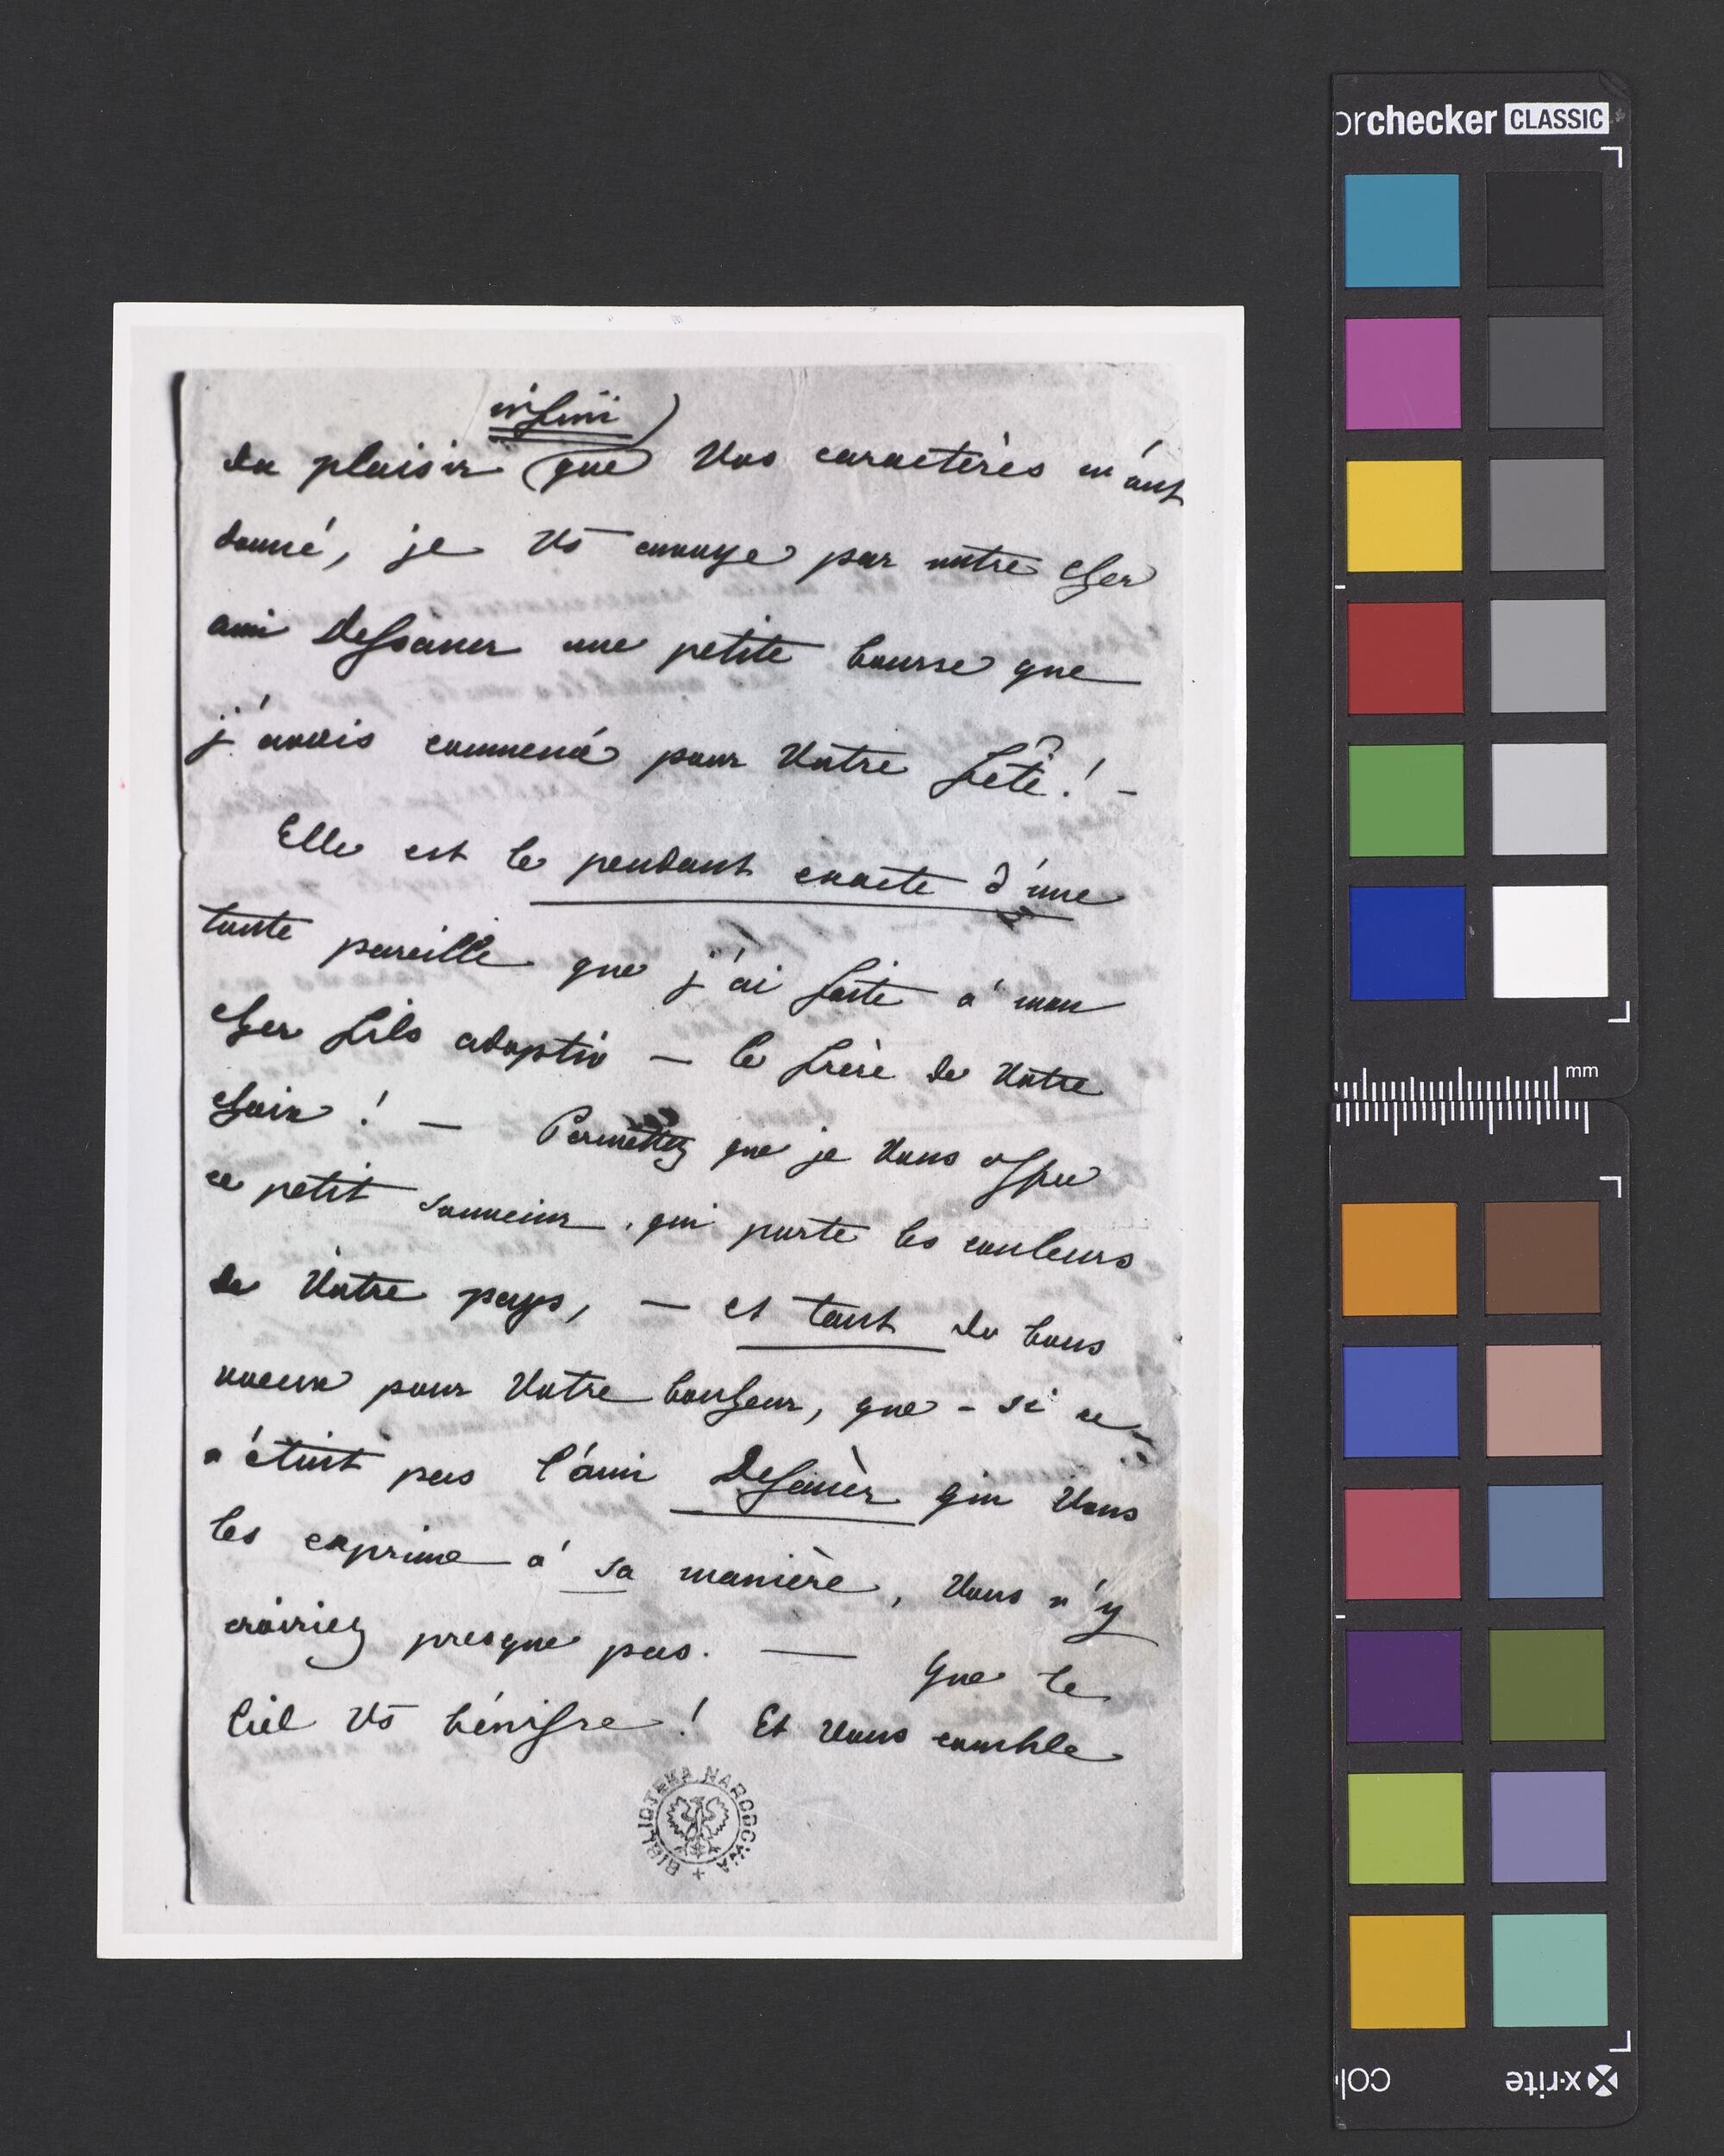 infini
du plaisir (que Vos caractères m'ont
donné, je Vs envoye par notre cher
ami Dessauer une petite bourse que
j'avois commencé pour Votre fête! -
Elle est le pendant exacte d'une
toute pareille que j'ai faite à mon
cher fils adoptiv — le frère de Votre
choix! — Permettez que je Vous offre
ce petit souvenir, qui porte les couleurs
de Votre pays, — et tant de bons
voeux pour Votre bonheur, que - si ce
n'étoit pas l'ami Dessauer qui Vous
les exprime à sa manière, Vous n'y
croiriez presque pas. — Que le
Ciel Vs bénisse! Et Vous comble
BIBLIOTEKA NARODOWA +
orchecker CLASSIC
mm
x·rite
col